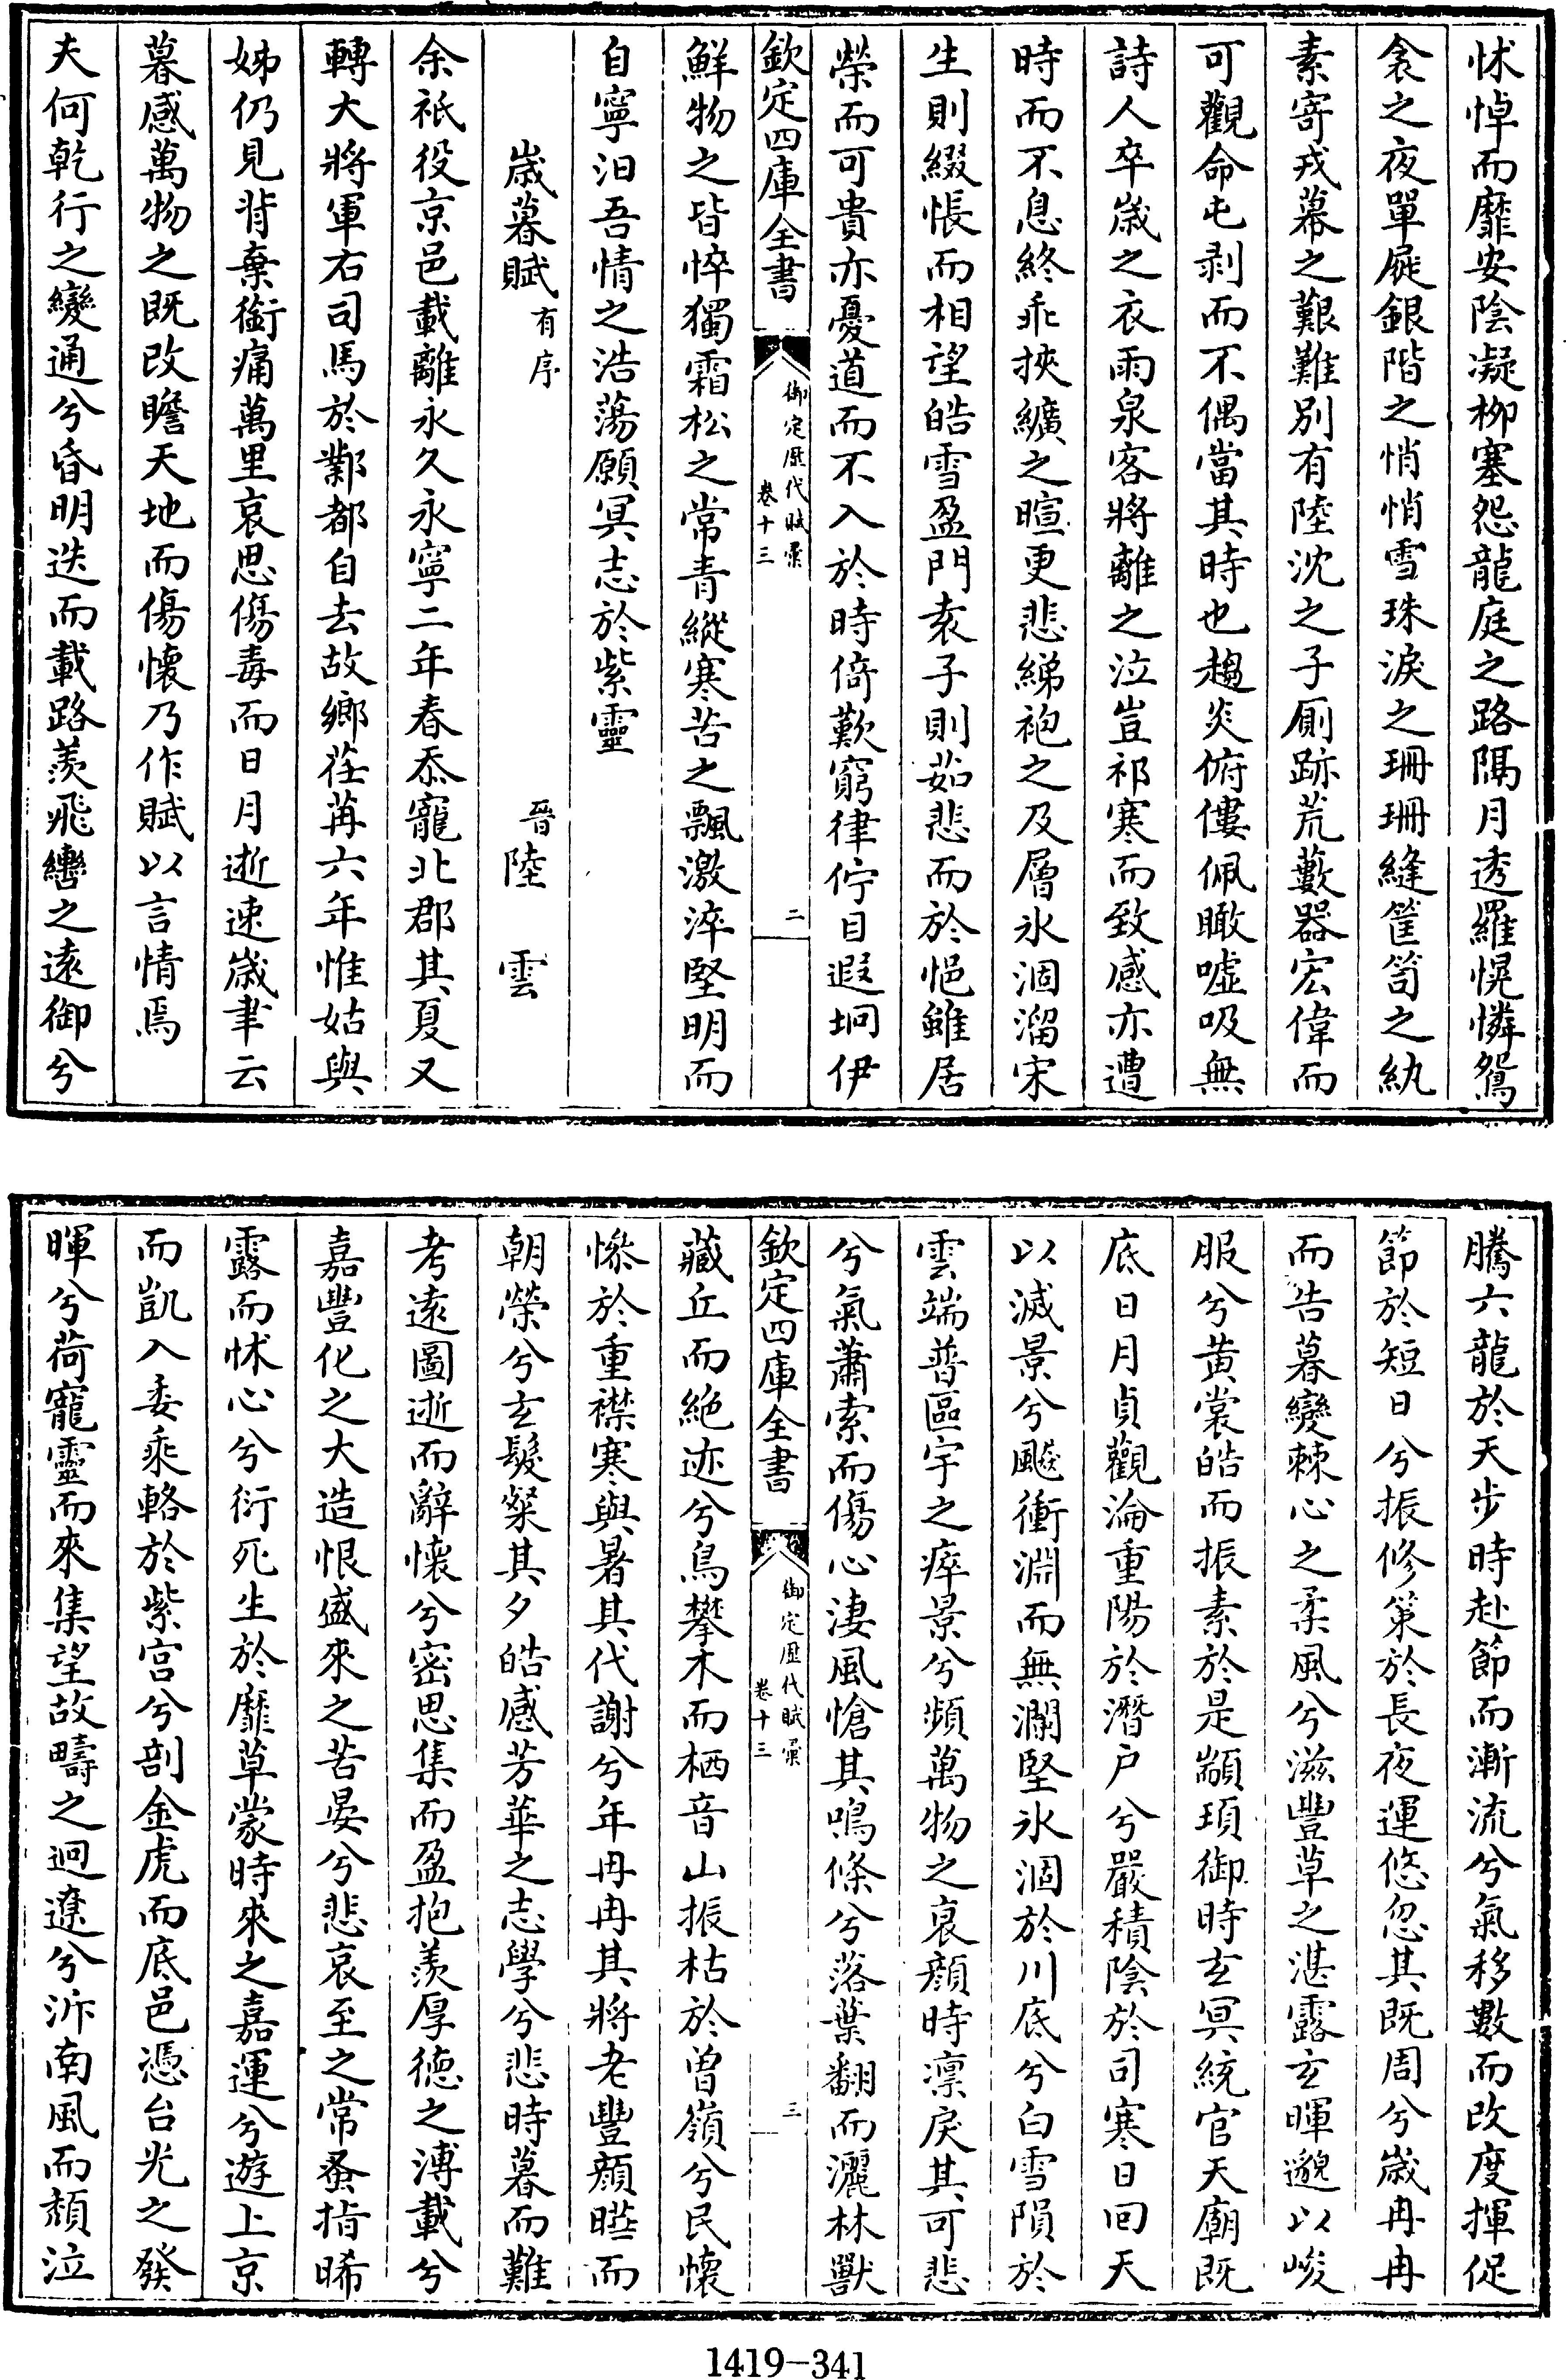 怵悼而靡安陰凝柳塞怨龍庭之路隔月透羅幌憐鴛
衾之夜單屣銀階之悄悄雪珠淚之珊珊縫筐笥之紈
素寄戎幕之艱難别有陸沈之子厠跡荒藪器宏偉而
可觀命屯剥而不偶當其時也趨炎俯僂佩瞰噓吸無
詩人卒歳之衣雨泉客將離之泣豈祁寒而致感亦遭
時而不息終乖挾纊之暄更悲綈袍之及層氷涸溜宋
生則綴悵而相望皓雪盈門袁子則茹悲而於悒雖居
榮而可貴亦憂道而不入於時倚歎窮律佇目遐坰伊
欽定四庫全書
御定歴代賦彚
卷十三
二
鮮物之皆悴獨霜松之常青縱寒苦之飄激淬堅明而
自寧汨吾情之浩蕩願冥志於紫靈
歳暮賦有序
晉陸雲
余祇役京邑載離永久永寧二年春忝寵北郡其夏又
轉大將軍右司馬於鄴都自去故鄉荏苒六年惟姑與
姊仍見背棄銜痛萬里哀思傷毒而日月逝速歳聿云
暮感萬物之既改瞻天地而傷懷乃作賦以言情焉
夫何乾行之變通兮昏明迭而載路羨飛轡之遠御兮
騰六龍於天步時赴節而漸流兮氣移數而改度揮促
節於短日兮振修策於長夜運悠忽其既周兮歳冉冉
而告暮變棘心之柔風兮滋豐草之湛露玄暉邈以峻
服兮黄裳皓而振素於是顓頊御時玄冥統官天廟既
底日月貞觀淪重陽於潛户兮嚴積陰於司寒日回天
以滅景兮飈衝淵而無瀾堅氷涸於川底兮白雪隕於
雲端普區宇之瘁景兮頻萬物之衰顔時凛戾其可悲
兮氣蕭索而傷心淒風愴其鳴條兮落葉翻而灑林獸
欽定四庫全書
御定歴代賦彚
卷十三
三
藏丘而絶迹兮鳥攀木而栖音山振枯於曽嶺兮民懷
慘於重襟寒與暑其代謝兮年冉冉其將老豐顔曀而
朝榮兮玄髮粲其夕皓感芳華之志學兮悲時暮而難
考遠圖逝而辭懷兮密思集而盈抱羨厚徳之溥載兮
嘉豐化之大造恨盛來之苦晏兮悲哀至之常蚤指晞
露而怵心兮衍死生於靡草蒙時來之嘉運兮遊上京
而凱入委乘輅於紫宫兮剖金虎而底邑憑台光之發
暉兮荷寵靈而來集望故疇之迥遼兮泝南風而頹泣
1419-341